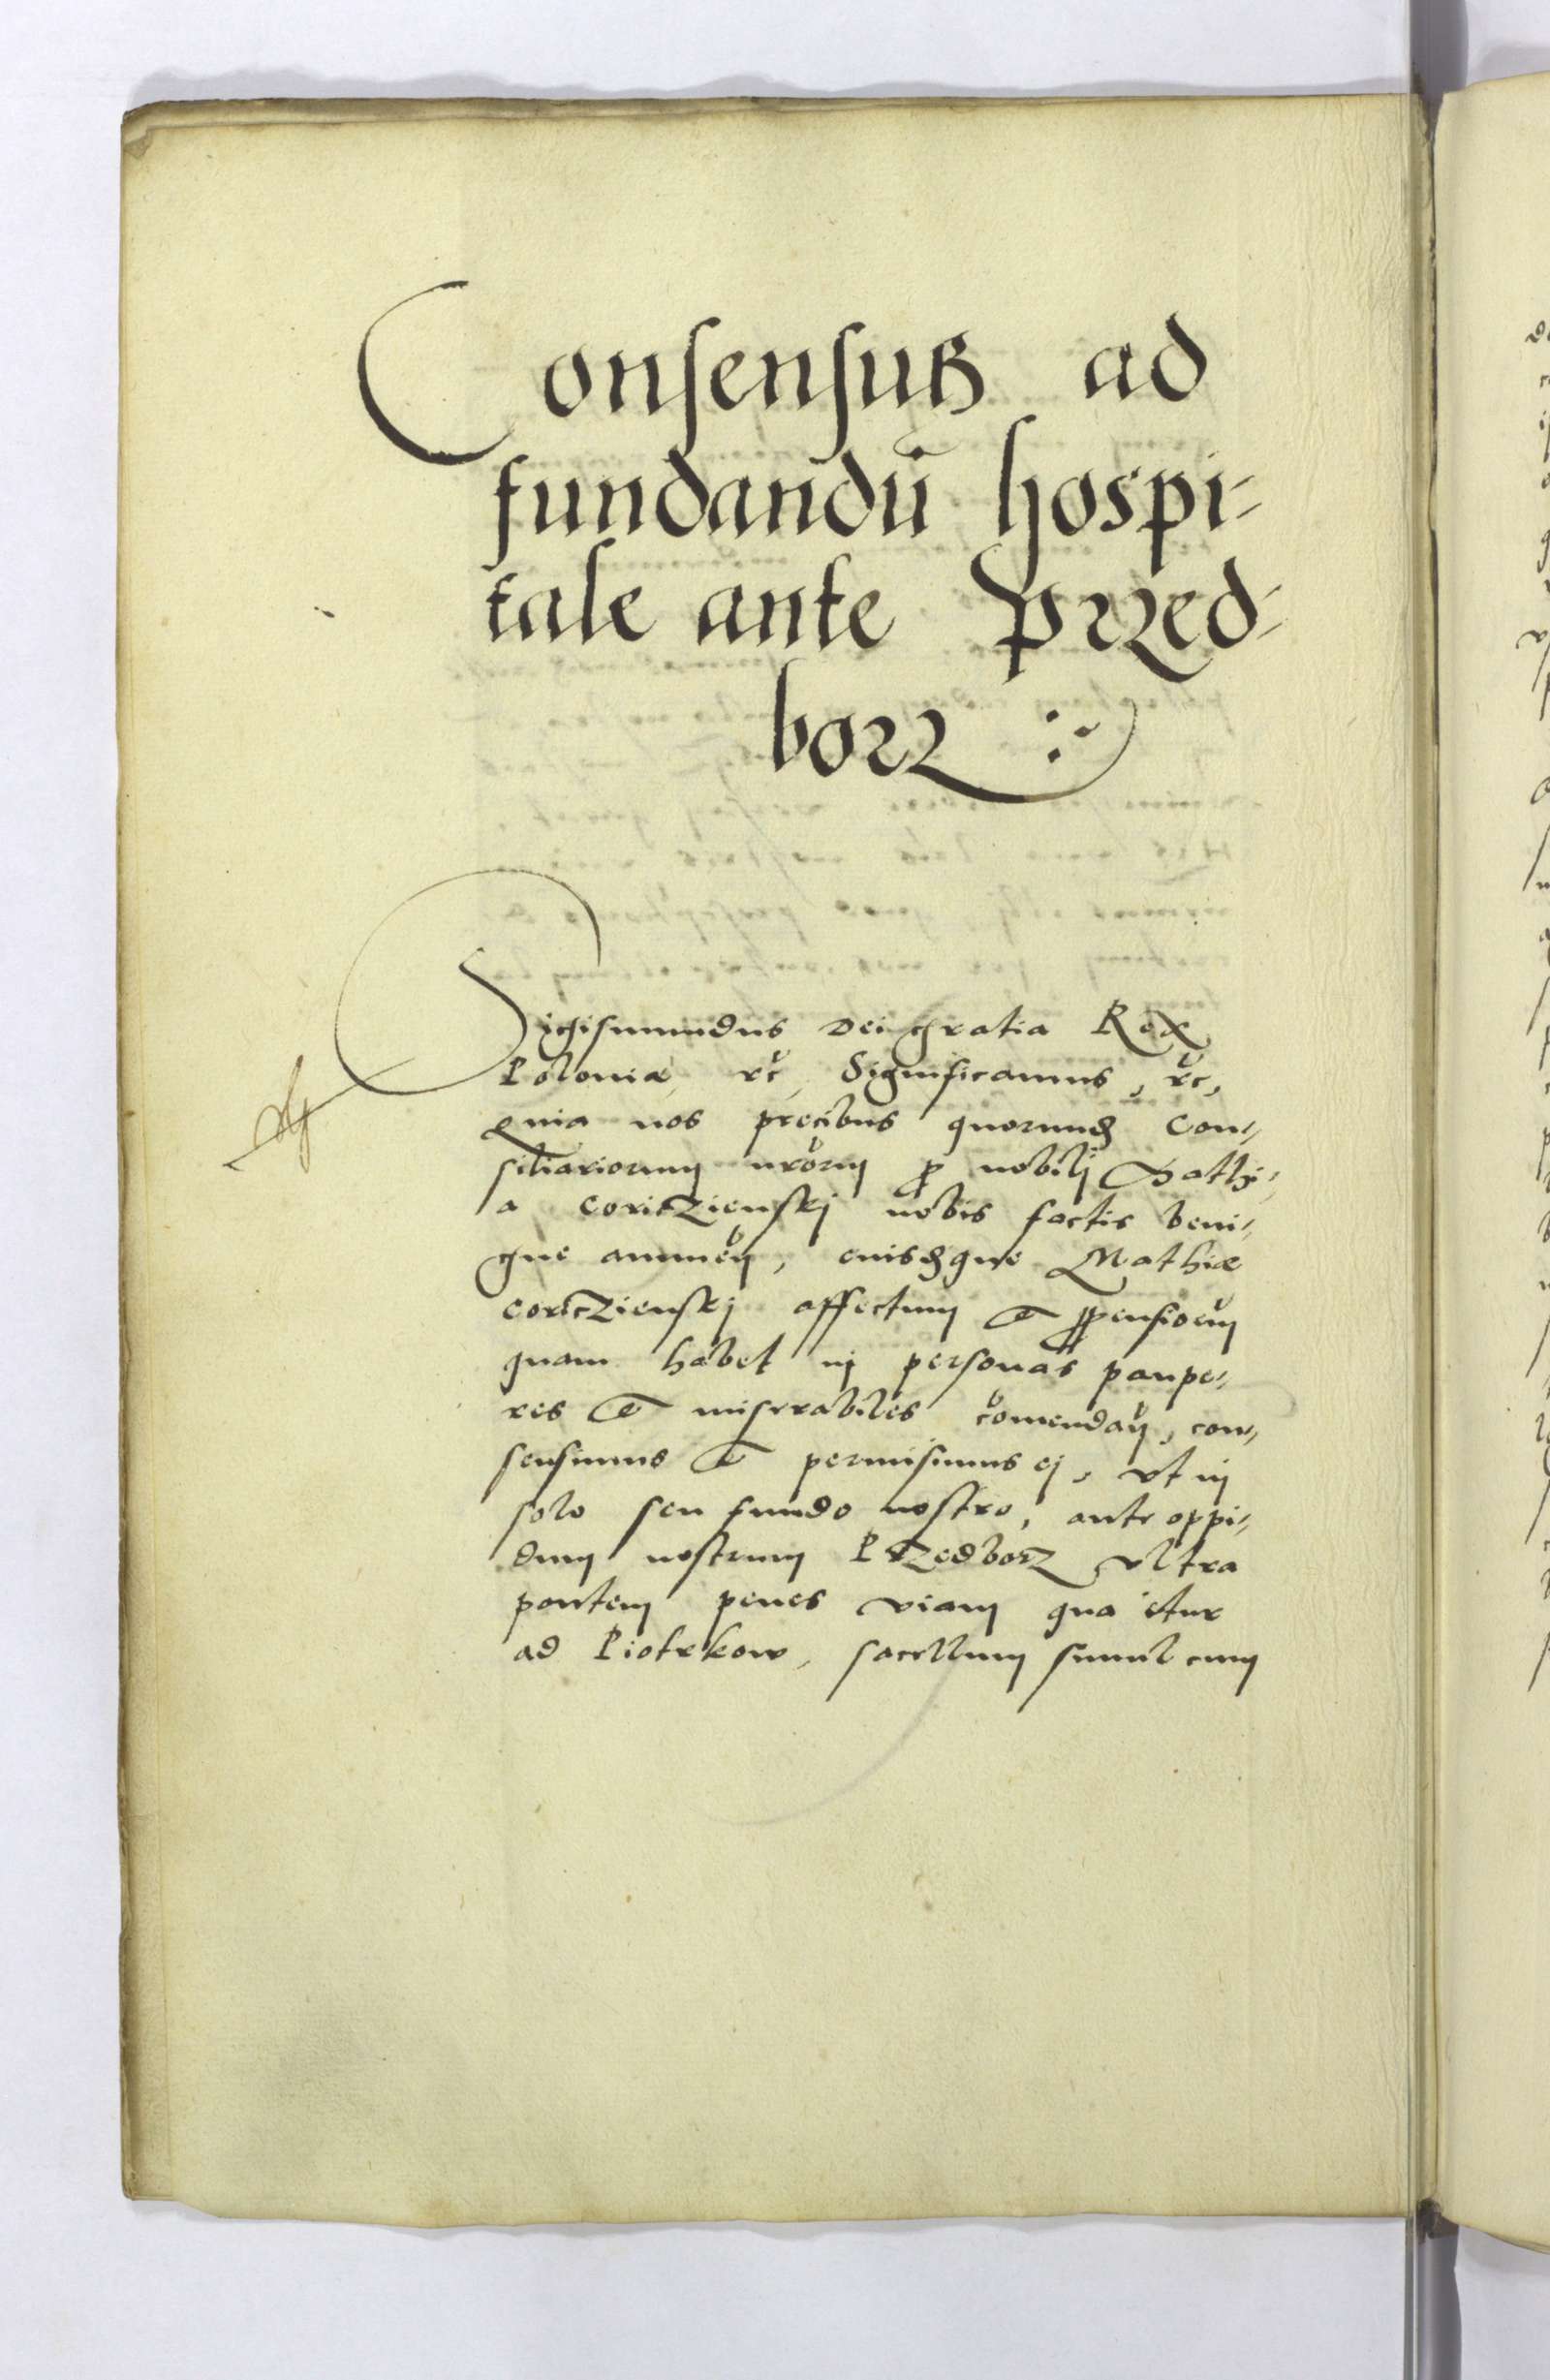 Consensus ad
fundandū hospi-
tale ante Przed-
borz
Sigismundus Dei gratia Rex
Poloniæ, etc, Significamus, etc,
Quia nos precibus quorund Con-
siliariorum nrorum pro nobili Mathi-
a Coriczienskj nobis factis beni-
gne annuen, eiusdque Mathiæ
Coriczienskj affectum et propensioem
quam habet in personas paupe-
res et miserabiles comendan, con-
sensimus et permisimus ej, vt in
solo seu fundo nostro, ante oppi-
dum nostrum Przedborz vltra
pontem penes viam qua itur
ad Piotrkow, sacellum simul cum